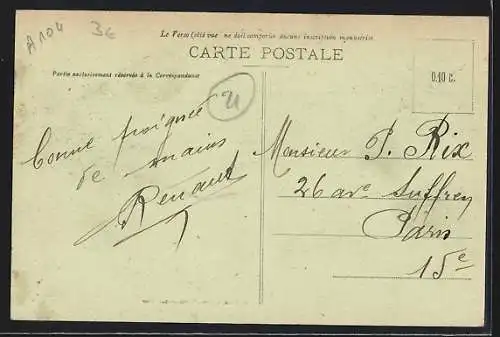 A104 3€
Le Verso (côté vue) ne doit comporter aucune inscription manuscrite
CARTE POSTALE
Partie exclusivement réservée à la Correspondance
0.10 c.
21
Bonne poignée
de mains
Renaud
Monsieur P. Rix
26 ave Suffren
Paris
15e